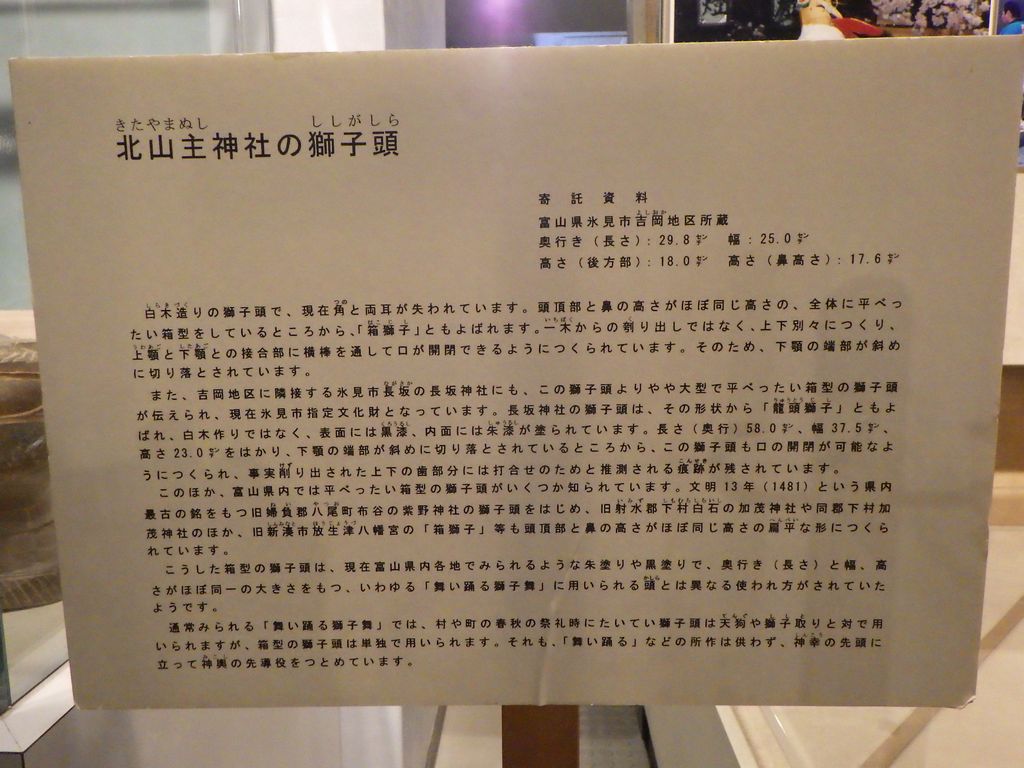 きたやまぬし ししがしら
北山主神社の獅子頭
寄託資料
富山県氷見市吉岡地区所蔵
奥行き（長さ）：29.8㌢ 幅：25.0㌢
高さ（後方部）：18.0㌢ 高さ（鼻高さ）：17.6㌢
白木造りの獅子頭で、現在角と両耳が失われています。頭頂部と鼻の高さがほぼ同じ高さの、全体に平べっ
たい箱型をしているところから、「箱獅子」ともよばれます。一木からの刳り出しではなく、上下別々につくり、
上顎と下顎との接合部に横棒を通して口が開閉できるようにつくられています。そのため、下顎の端部が斜め
に切り落とされています。
また、吉岡地区に隣接する氷見市長坂の長坂神社にも、この獅子頭よりやや大型で平べったい箱型の獅子頭
が伝えられ、現在氷見市指定文化財となっています。長坂神社の獅子頭は、その形状から「龍頭獅子」ともよ
ばれ、白木作りではなく、表面には黒漆、内面には朱漆が塗られています。長さ（奥行）58.0㌢、幅37.5㌢、
高さ23.0㌢をはかり、下顎の端部が斜めに切り落とされているところから、この獅子頭も口の開閉が可能なよ
うにつくられ、事実削り出された上下の歯部分には打合せのためと推測される痕跡が残されています。
このほか、富山県内では平べったい箱型の獅子頭がいくつか知られています。文明13年（1481）という県内
最古の銘をもつ旧婦負郡八尾町布谷の紫野神社の獅子頭をはじめ、旧射水郡下村白石の加茂神社や同郡下村加
茂神社のほか、旧新湊市放生津八幡宮の「箱獅子」等も頭頂部と鼻の高さがほぼ同じ高さの扁平な形につくら
れています。
こうした箱型の獅子頭は、現在富山県内各地でみられるような朱塗りや黒塗りで、奥行き（長さ）と幅、高
さがほぼ同一の大きさをもつ、いわゆる「舞い踊る獅子舞」に用いられる頭とは異なる使われ方がされていた
ようです。
通常みられる「舞い踊る獅子舞」では、村や町の春秋の祭礼時にたいてい獅子頭は天狗や獅子取りと対で用
いられますが、箱型の獅子頭は単独で用いられます。それも、「舞い踊る」などの所作は供わず、神幸の先頭に
立って神輿の先導役をつとめています。